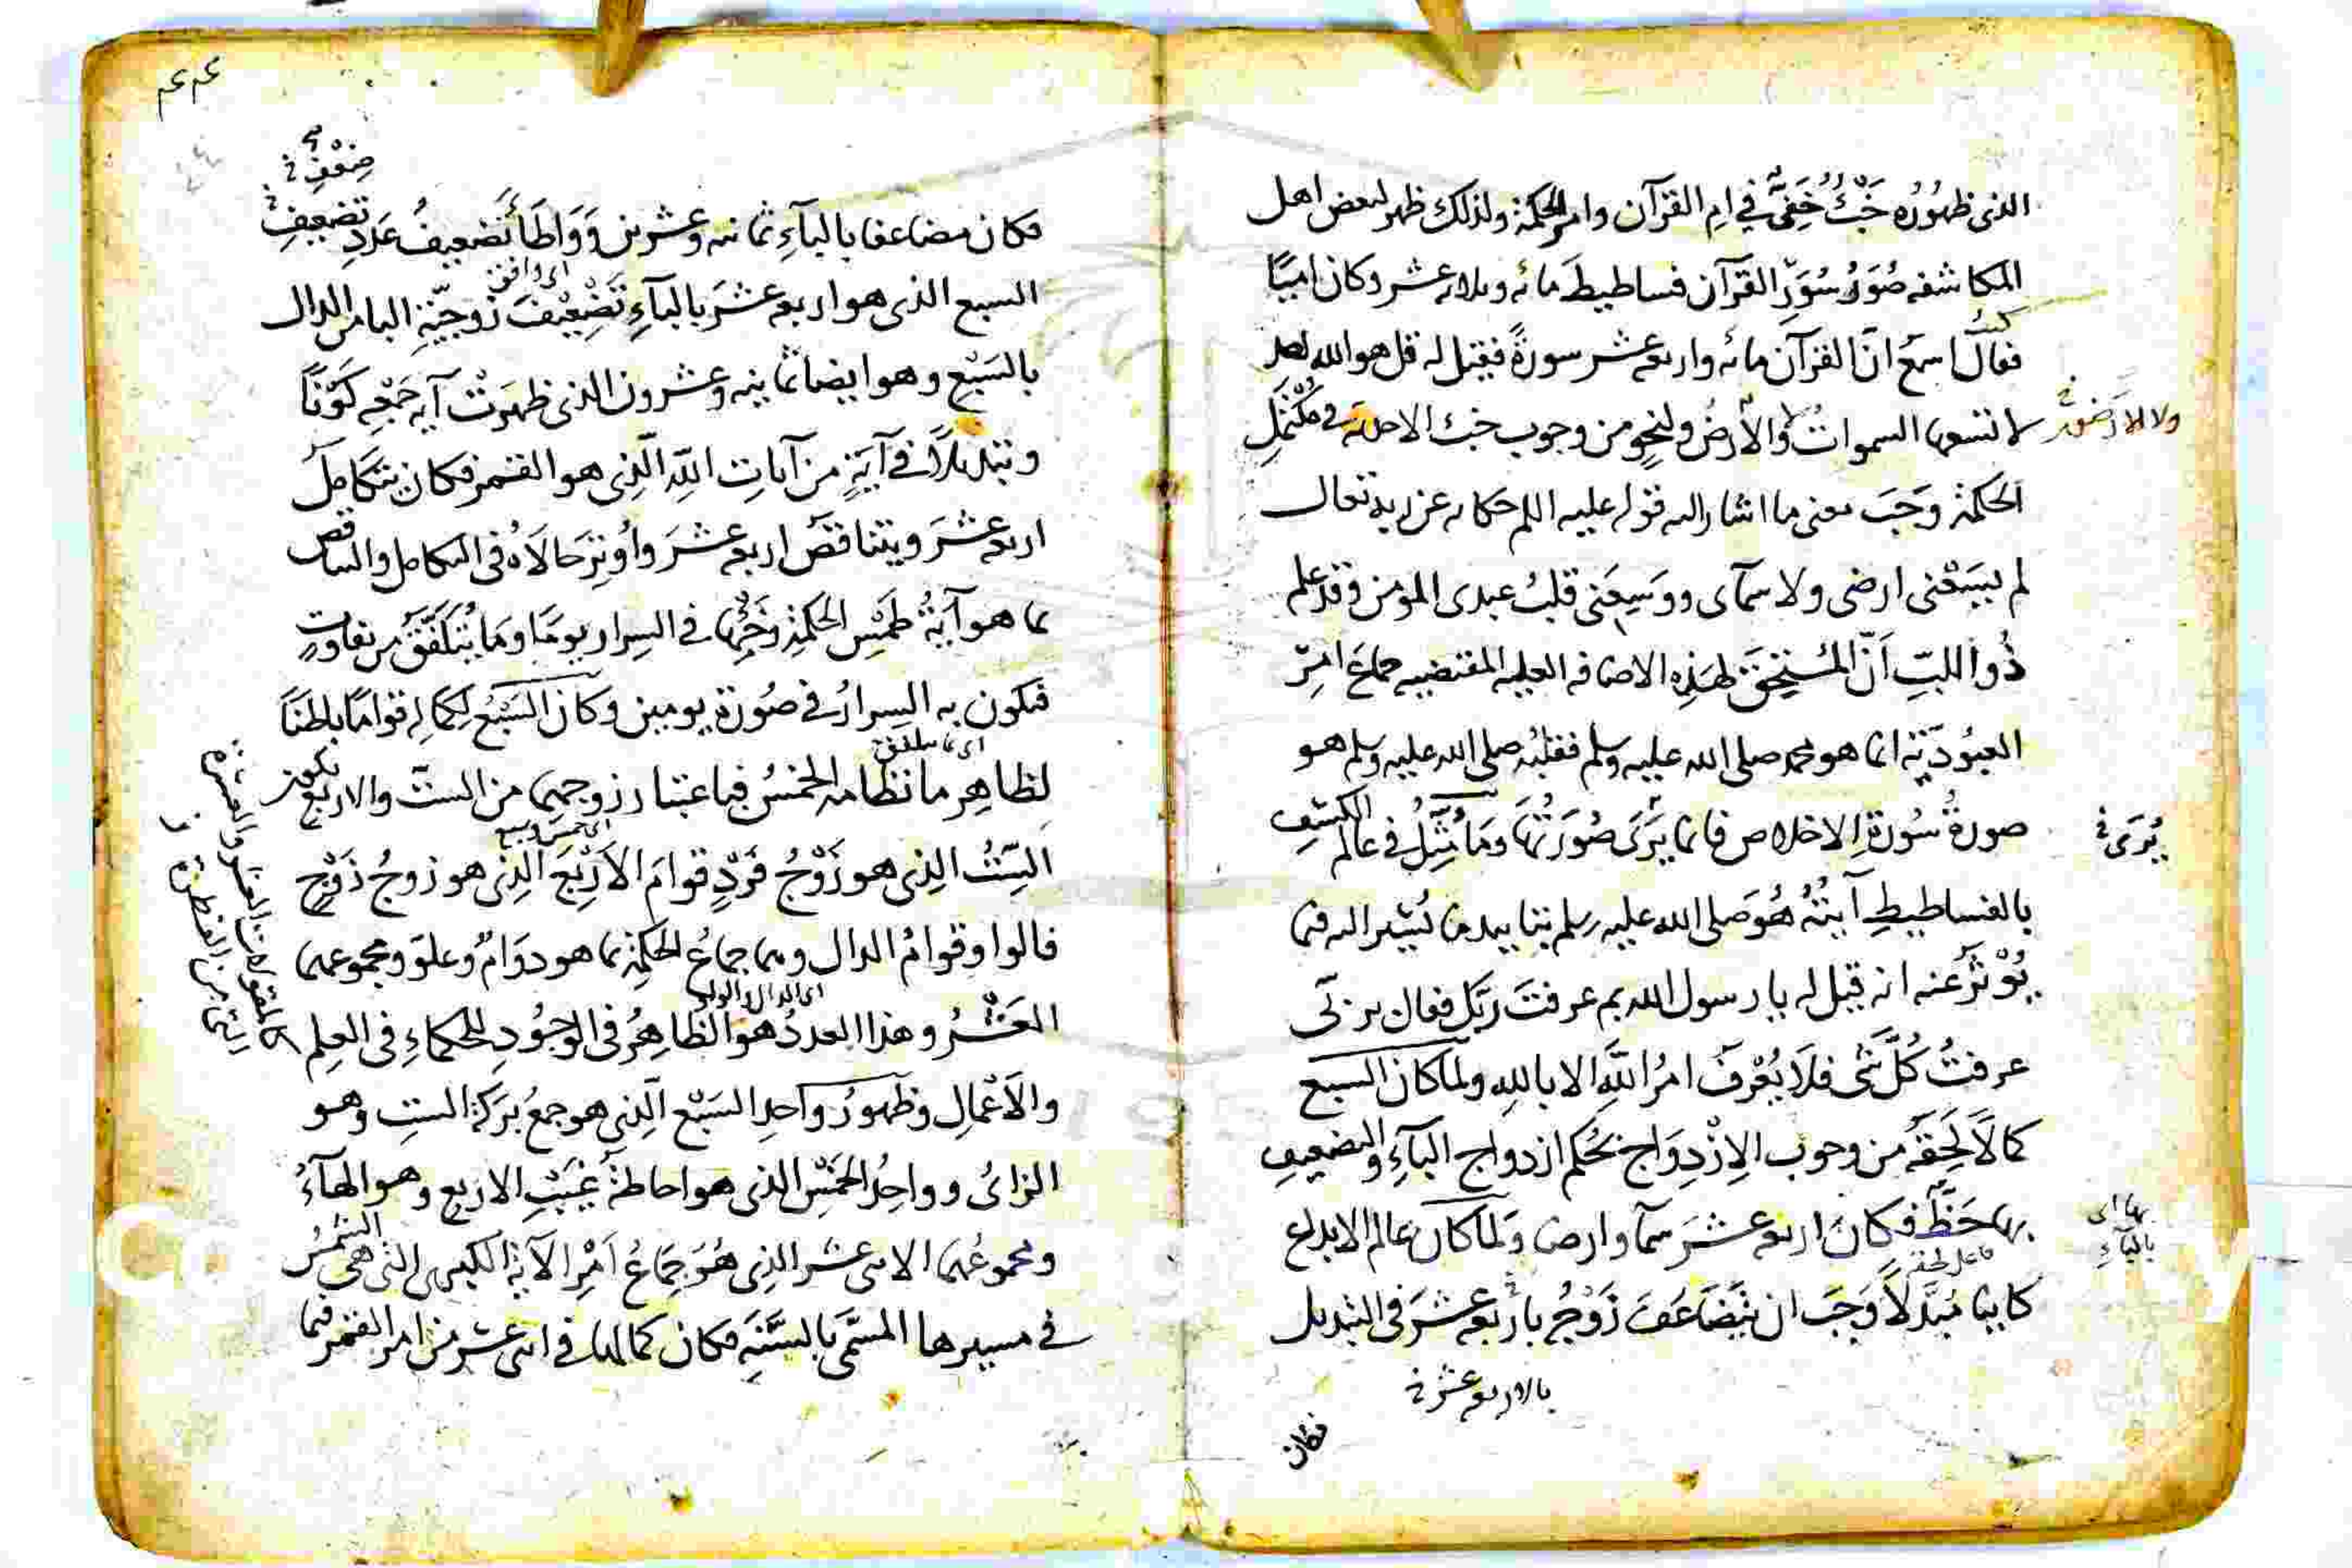 الذى ظهُورُه خَبْءٌ خَفِىٌّ فى ام القرآن وامر الحكمة ولذلك ظهر لبعض اهل
المكاشفه صُوَرُ سُوَرِ القرآن فساطيطَ مائه وثلاثه عشر وكان اميًّا
فقال كنت اسمع انّ القرآن مائه واربعه عشر سورةً فقيل له قل هو الله احد
لا تسعها السموات والأرض ولنحوٍ من وجوب خبء الاحديّة فى مُكْتَمَلِ
ولا الارضون
الحكمة وَجَبَ معنى ما اشار اليه قوله عليه السلم حكايه عن ربه تعالى
لم يسَعْنى ارضى ولا سمآى ووَسِعَنى قلبُ عبدى المومن وقد علم
ذُوا اللبِّ اَنّ المُستحِقَّ لهَذِه الاضافه العليه المقتضيه جماعَ امرِ
العبُودِيّة انما هو محمد صلى الله عليه وسلم فقلبُه صلى الله عليه وسلم هو
صورةُ سُورةِ الاخلاص فانما يَرَى صُورَتُهَا ومَا مُثِّلُ فى عالم الكشفِ
يُرَى خ
بالفساطيطِ آيتُهُ هُوَ صلى الله عليه وسلم بتاييد ما يُشير اليه فيما
يُوْثَرُ عنه انه قيل له يا رسول الله بم عرفتَ ربّك فقال بربّى
عرفتُ كُلَّ شَىْ فلَا يُعْرفُ امرُ اللَّهِ الا باللهِ ولما كان السبع
كمالًا لَحِقَهُ من وجوب الِازْدِوَاج بحُكم ازدواج البآءِ والتضعيفِ
بها حَظٌّ فكان اربعه عشَرَ سمآ وارض ولَما كان عالم الابداع
بها اى بالبآءِ
فاعل لحقه
كاينا مُبَدَّلاً وَجَبَ ان يتَضَاعَفَ زَوْجُ باربعه عشَرَ فى التبديل
بالاربعه عشر خ
فكان
ضِعْفِ خ
فكان مضاعفا بالبآءِ ثمانيه وعشرين وَوَاطَأَ تضعيفُ عَدَدِ تضعِيفِ
السبع الذى هو اربعه عشَرَ بالبآءِ تَضْعِيْفَ زوجيّةِ البا من الدال
اى وافق
بالسَبْعِ وهو ايضا ثمانيه وعشرون الذى ظهرَتْ آيه جَمْعِه كَوْنًا
وتبديلاً فى آيَةٍ من آياتِ اللهِ الَّذِى هو القمر فكان يتكامَلُ
اربعه عشَرَ ويتناقصُ اربعه عشَرَ واُوتِرَ حالَاهُ فى التكامل والتناقص
بما هو آيةُ طَمْسِ الحكمةِ وخَبْئِها فى السِرار يومًا ومَا يُتَلَفَّقُ من تفاوتٍ
فيكون به السِرارُ فى صُورة يومين وكان السَبْعُ لِكمالِه قوامًا باطنًا
اى ما يتلفق
لظاهِرِ ما نظامه الخمسُ فباعتبار زوجهما من الستّ والاربع
السِّتُّ الذِى هو زَوْجُ فَرْدٍ قوامَ الاَرْبَعِ الذِى هو زوجُ زَوْجٍ
اى خمس وسبع
فالواو قوامُ الدال وهما جماعُ الحكمةِ بما هو دوَامٌ وعلوّ ومجموعهما
العَشْرُ وهذا العددُ هو الظاهِرُ فى الوجُودِ للحكماءِ فى العِلم
اى الدال والواو
والاَعْمالِ وظهورُ واحدِ السَبْعِ الَّذِى هو جمعُ بَركة الستِ وهو
الزائُ وواحِدُ الخَمْسِ الذى هو احاطةُ غَيْبِ الاربع وهو الهآءُ
ومجموعُهُما الاثنى عشر الذِى هُوَ جِمَاعُ اَمْرِ الآيةِ الكبرى التى هى الشمْسُ
فى مسيرها المسمَّى بالسَّنَةِ فكان كمالها فى اثنى عشر من امر القمر فيما